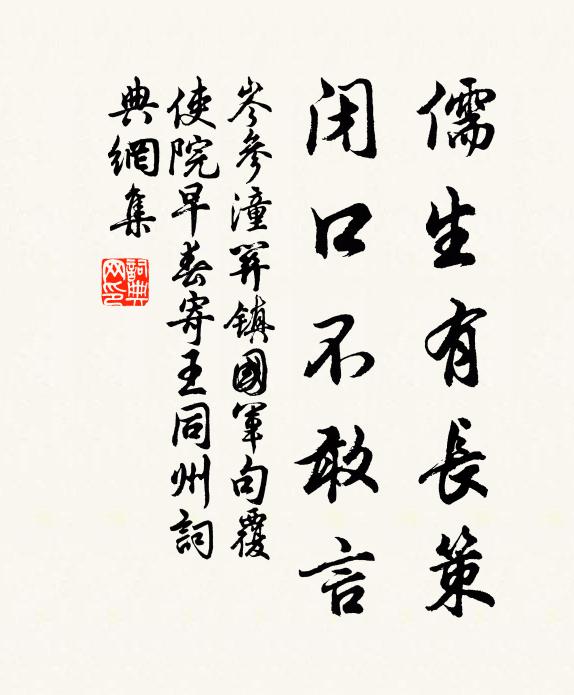 儒生有長策
闭口不敢言
岑參潼関鎮國軍句覆
使院早春寄王同州詞
典網集
詞典
网印